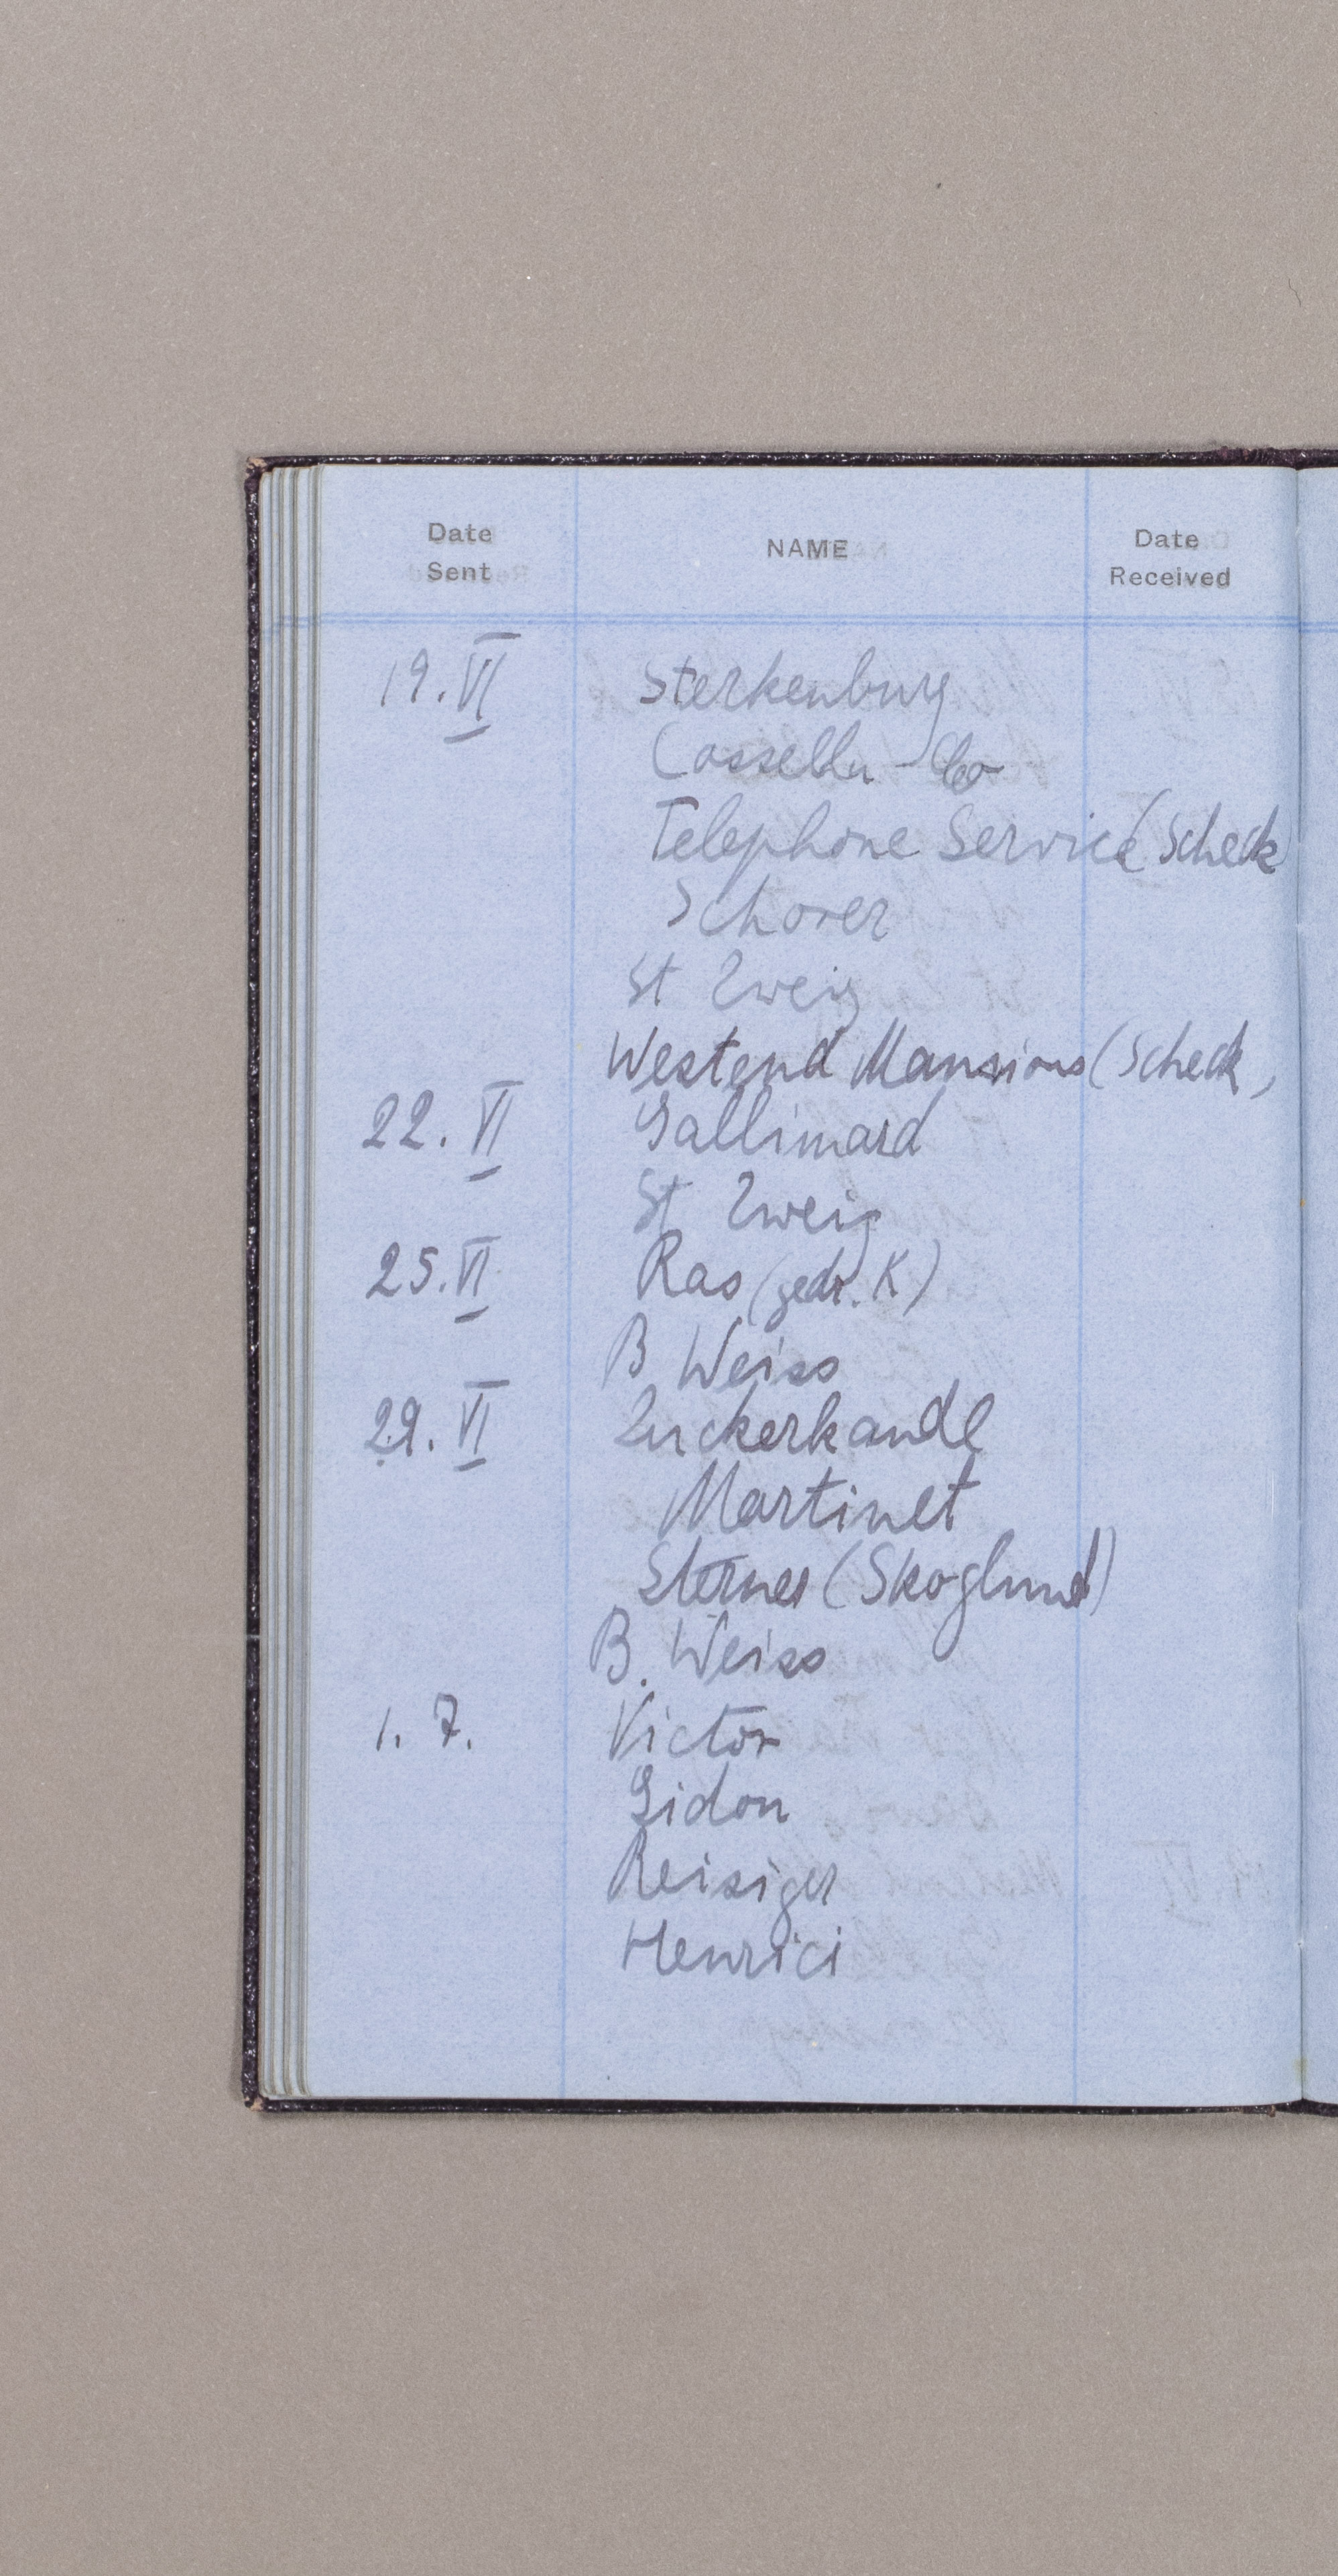 Date Sent NAME Date Received
19. VI Sterkenburg
Cassella - Co
Telephone Service (Scheck
Schorer
St Zweig
Westend Mansions (Scheck,
22. VI Gallimard
St Zweig
25. VI Ras (gedr. K)
B Weiss
29. VI Zuckerkandl
Martinet
Sterner (Skoglund)
B. Weiss
1. 7. Victor
Gidon
Reisiger
Henrici